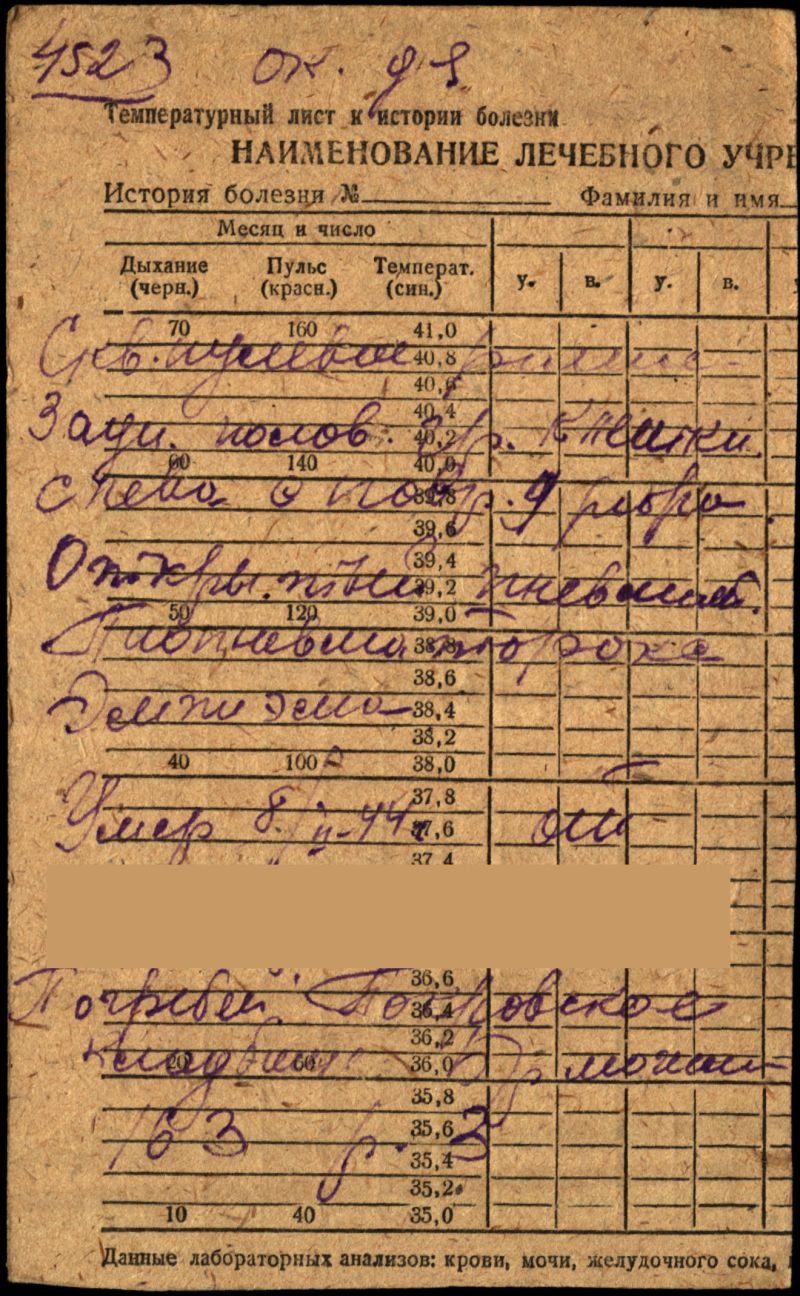 4523 ок.
Температурный лист к истории болезни
НАИМЕНОВАНИЕ ЛЕЧЕБНОГО УЧРЕ
История болезни № Фамилия и имя
Месяц и число
Дыхание (черн.) Пульс (красн.) Температ. (син.) у. в. у. в.
70 160 41,0
Скв. пулевое ранение
40,8
40,6
40,4
Задн. полов. гр. клетки
40,2
60 140 40,0
слева с повр. 9 ребра
39,8
39,6
39,4
Открытый пневмот.
39,2
50 120 39,0
Пиопневмоторокс
38,8
38,6
Эмпиэма
38,4
38,2
40 100 38,0
37,8
Умер 8/II-44 от
37,6
37,4
36,6
Погребен Покровское
36,4
36,2
кладбище Бр. могила
20 60 36,0
35,8
163 р. 3
35,6
35,4
35,2
10 40 35,0
Данные лабораторных анализов: крови, мочи, желудочного сока,